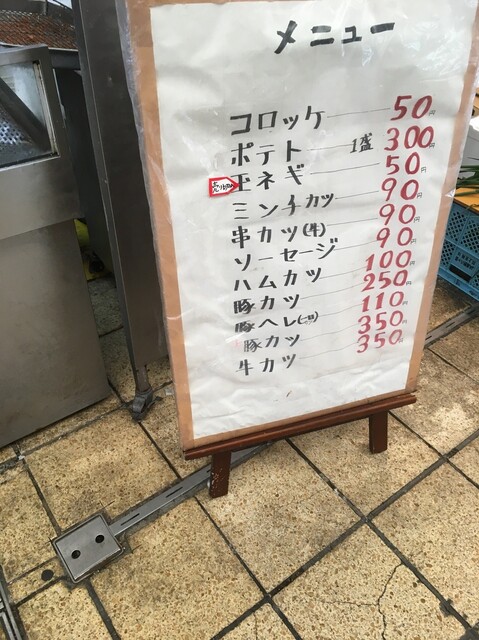 メニュー
コロッケ 50円
ポテト 1盛 300円
売り切れ 玉ネギ 50円
ミンチカツ 90円
串カツ(牛) 90円
ソーセージ 90円
ハムカツ 100円
豚カツ 250円
豚ヘレ 110円
豚カツ 350円
牛カツ 350円